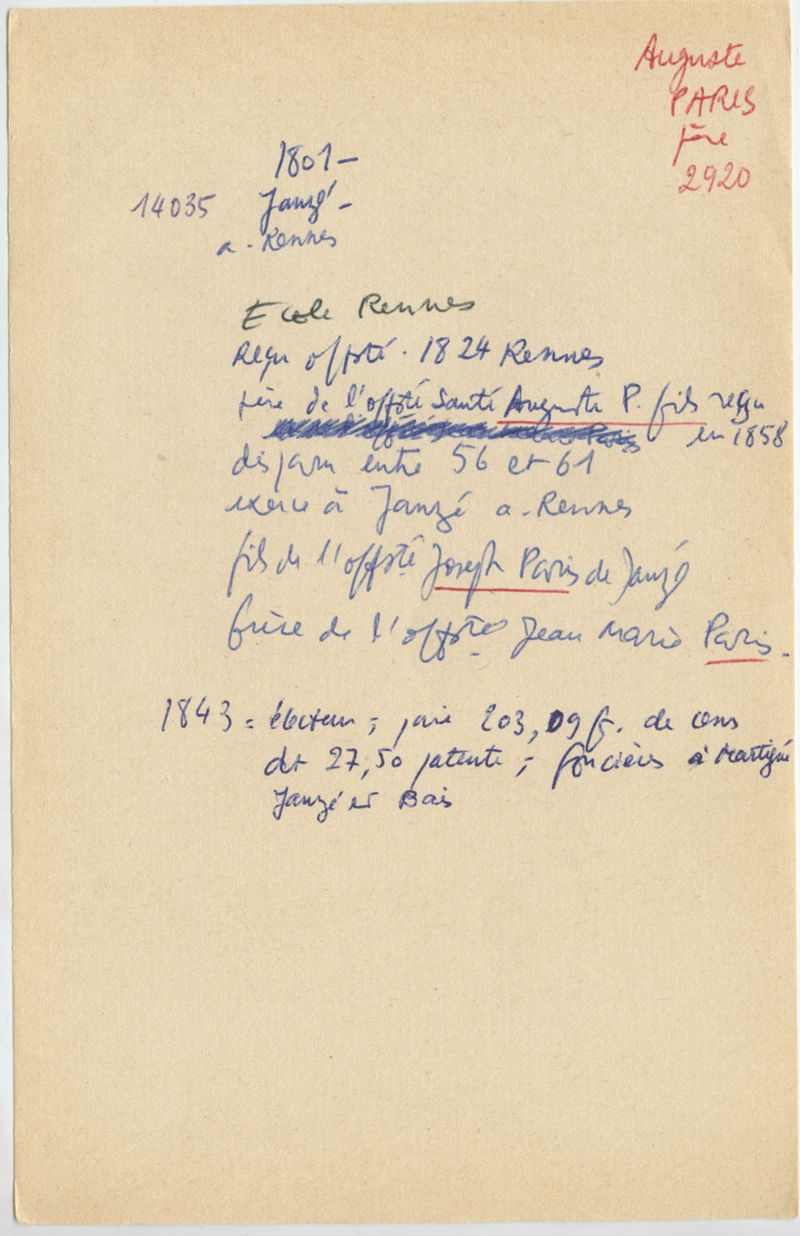 Auguste
PARIS
père
2920
1801 -
14035 Janzé -
a - Rennes
Ecole Rennes
Reçu offsté. 1824 Rennes
père de l'offsté Santé Auguste P. fils reçu
en 1858
disparu entre 56 et 61
exerce à Janzé a - Rennes
fils de l'offsté Joseph Paris de Janzé
frère de l'offsté Jean Marie Paris.
1843 = électeur ; paie 203,09 f. de cens
dt 27,50 patente ; foncières à Martigné
Janzé et Bais